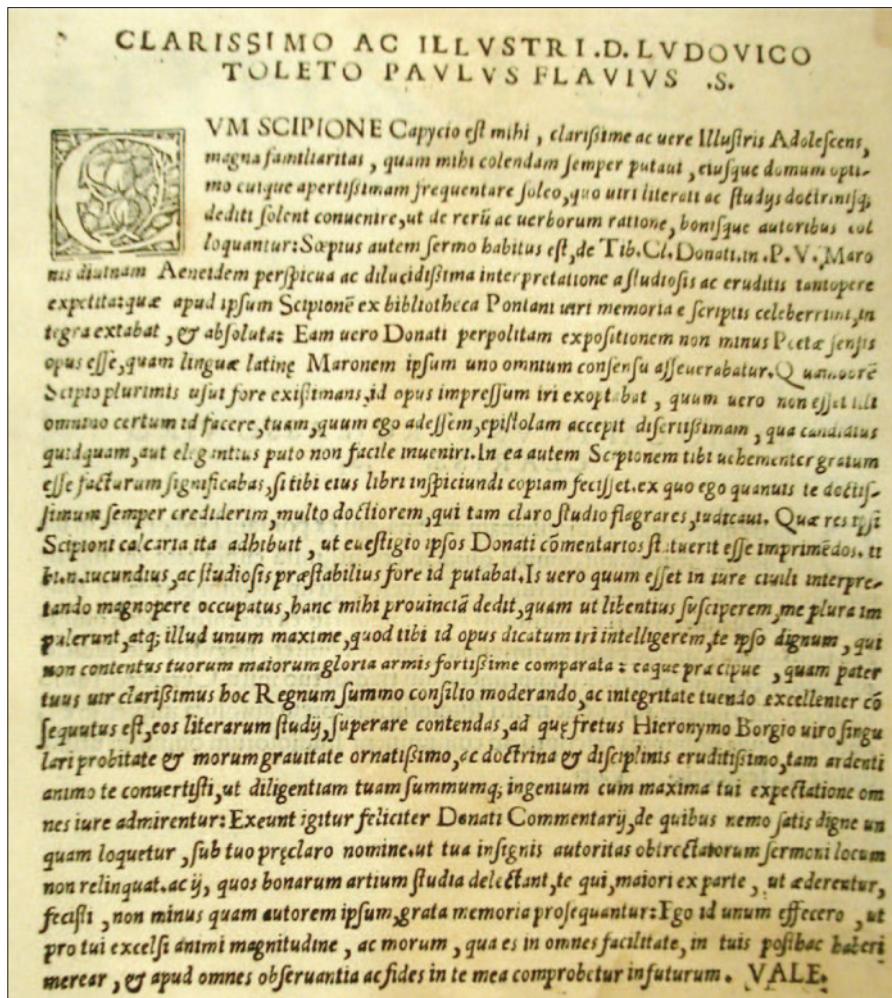 CLARISSIMO AC ILLVSTRI .D. LVDOVICO
TOLETO PAVLVS FLAVIVS .S.
CVM SCIPIONE Capycio est mihi, clarissime ac uere Illustris Adolescens,
magna familiaritas, quam mihi colendam semper putaui, eiusque domum opti-
mo cuique apertissimam frequentare soleo, quo uiri literati ac studijs doctrinisq;
dediti solent conuenire, ut de rerū ac uerborum ratione, bonisque autoribus col
loquantur: Sæpius autem sermo habitus est, de Tib. Cl. Donati. in. P. V. Maro
nis diuinam Aeneidem perspicua ac dilucidissima interpretatione a studiosis ac eruditis tantopere
expetita: quæ apud ipsum Scipionē ex bibliotheca Pontani uiri memoria e scriptis celeberrimi, in
tegra extabat, & absoluta: Eam uero Donati perpolitam expositionem non minus Poetæ sensis
opus esse, quam linguæ latinę Maronem ipsum uno omnium consensu asseuerabatur. Quamobrē
Scipio plurimis usui fore existimans, id opus impressum iri exoptabat, quum uero non esset illi
omnino certum id facere, tuam, quum ego adessem, epistolam accepit disertissimam, qua candidius
quidquam, aut elegantius puto non facile inueniri. In ea autem Scipionem tibi uehementer gratum
esse facturum significabas, si tibi eius libri inspiciundi copiam fecisset. ex quo ego quanuis te doctis-
simum semper crediderim, multo doctiorem, qui tam claro studio flagrares, iudicaui. Quæ res ipsi
Scipioni calcaria ita adhibuit, ut euestigio ipsos Donati cōmentarios statuerit esse imprimēdos. ti
bi iucundius, ac studiosis præstabilius fore id putabat. Is uero quum esset in iure ciuili interpre-
tando magnopere occupatus, hanc mihi prouinciā dedit, quam ut libentius susciperem, me plura im
pulerunt, atq; illud unum maxime, quod tibi id opus dicatum iri intelligerem, te ipso dignum, qui
non contentus tuorum maiorum gloria armis fortissime comparata: eaque præcipue, quam pater
tuus uir clarissimus hoc Regnum summo consilio moderando, ac integritate tuendo excellenter cō
sequutus est, eos literarum studij, superare contendas, ad quę fretus Hieronymo Borgio uiro singu
lari probitate & morum grauitate ornatissimo, ac doctrina & disciplinis eruditissimo, tam ardenti
animo te conuertisti, ut diligentiam tuam summumq; ingenium cum maxima tui expectatione om
nes iure admirentur: Exeunt igitur feliciter Donati Commentarij, de quibus nemo satis digne un
quam loquetur, sub tuo pręclaro nomine. ut tua insignis autoritas obtrectatorum sermoni locum
non relinquat. ac ij, quos bonarum artium studia delectant, te qui, maiori ex parte, ut æderentur,
fecisti, non minus quam autorem ipsum, grata memoria prosequantur: Ego id unum effecero, ut
pro tui excelsi animi magnitudine, ac morum, qua es in omnes facilitate, in tuis posthac haberi
merear, & apud omnes obseruantia ac fides in te mea comprobetur in futurum. VALE.